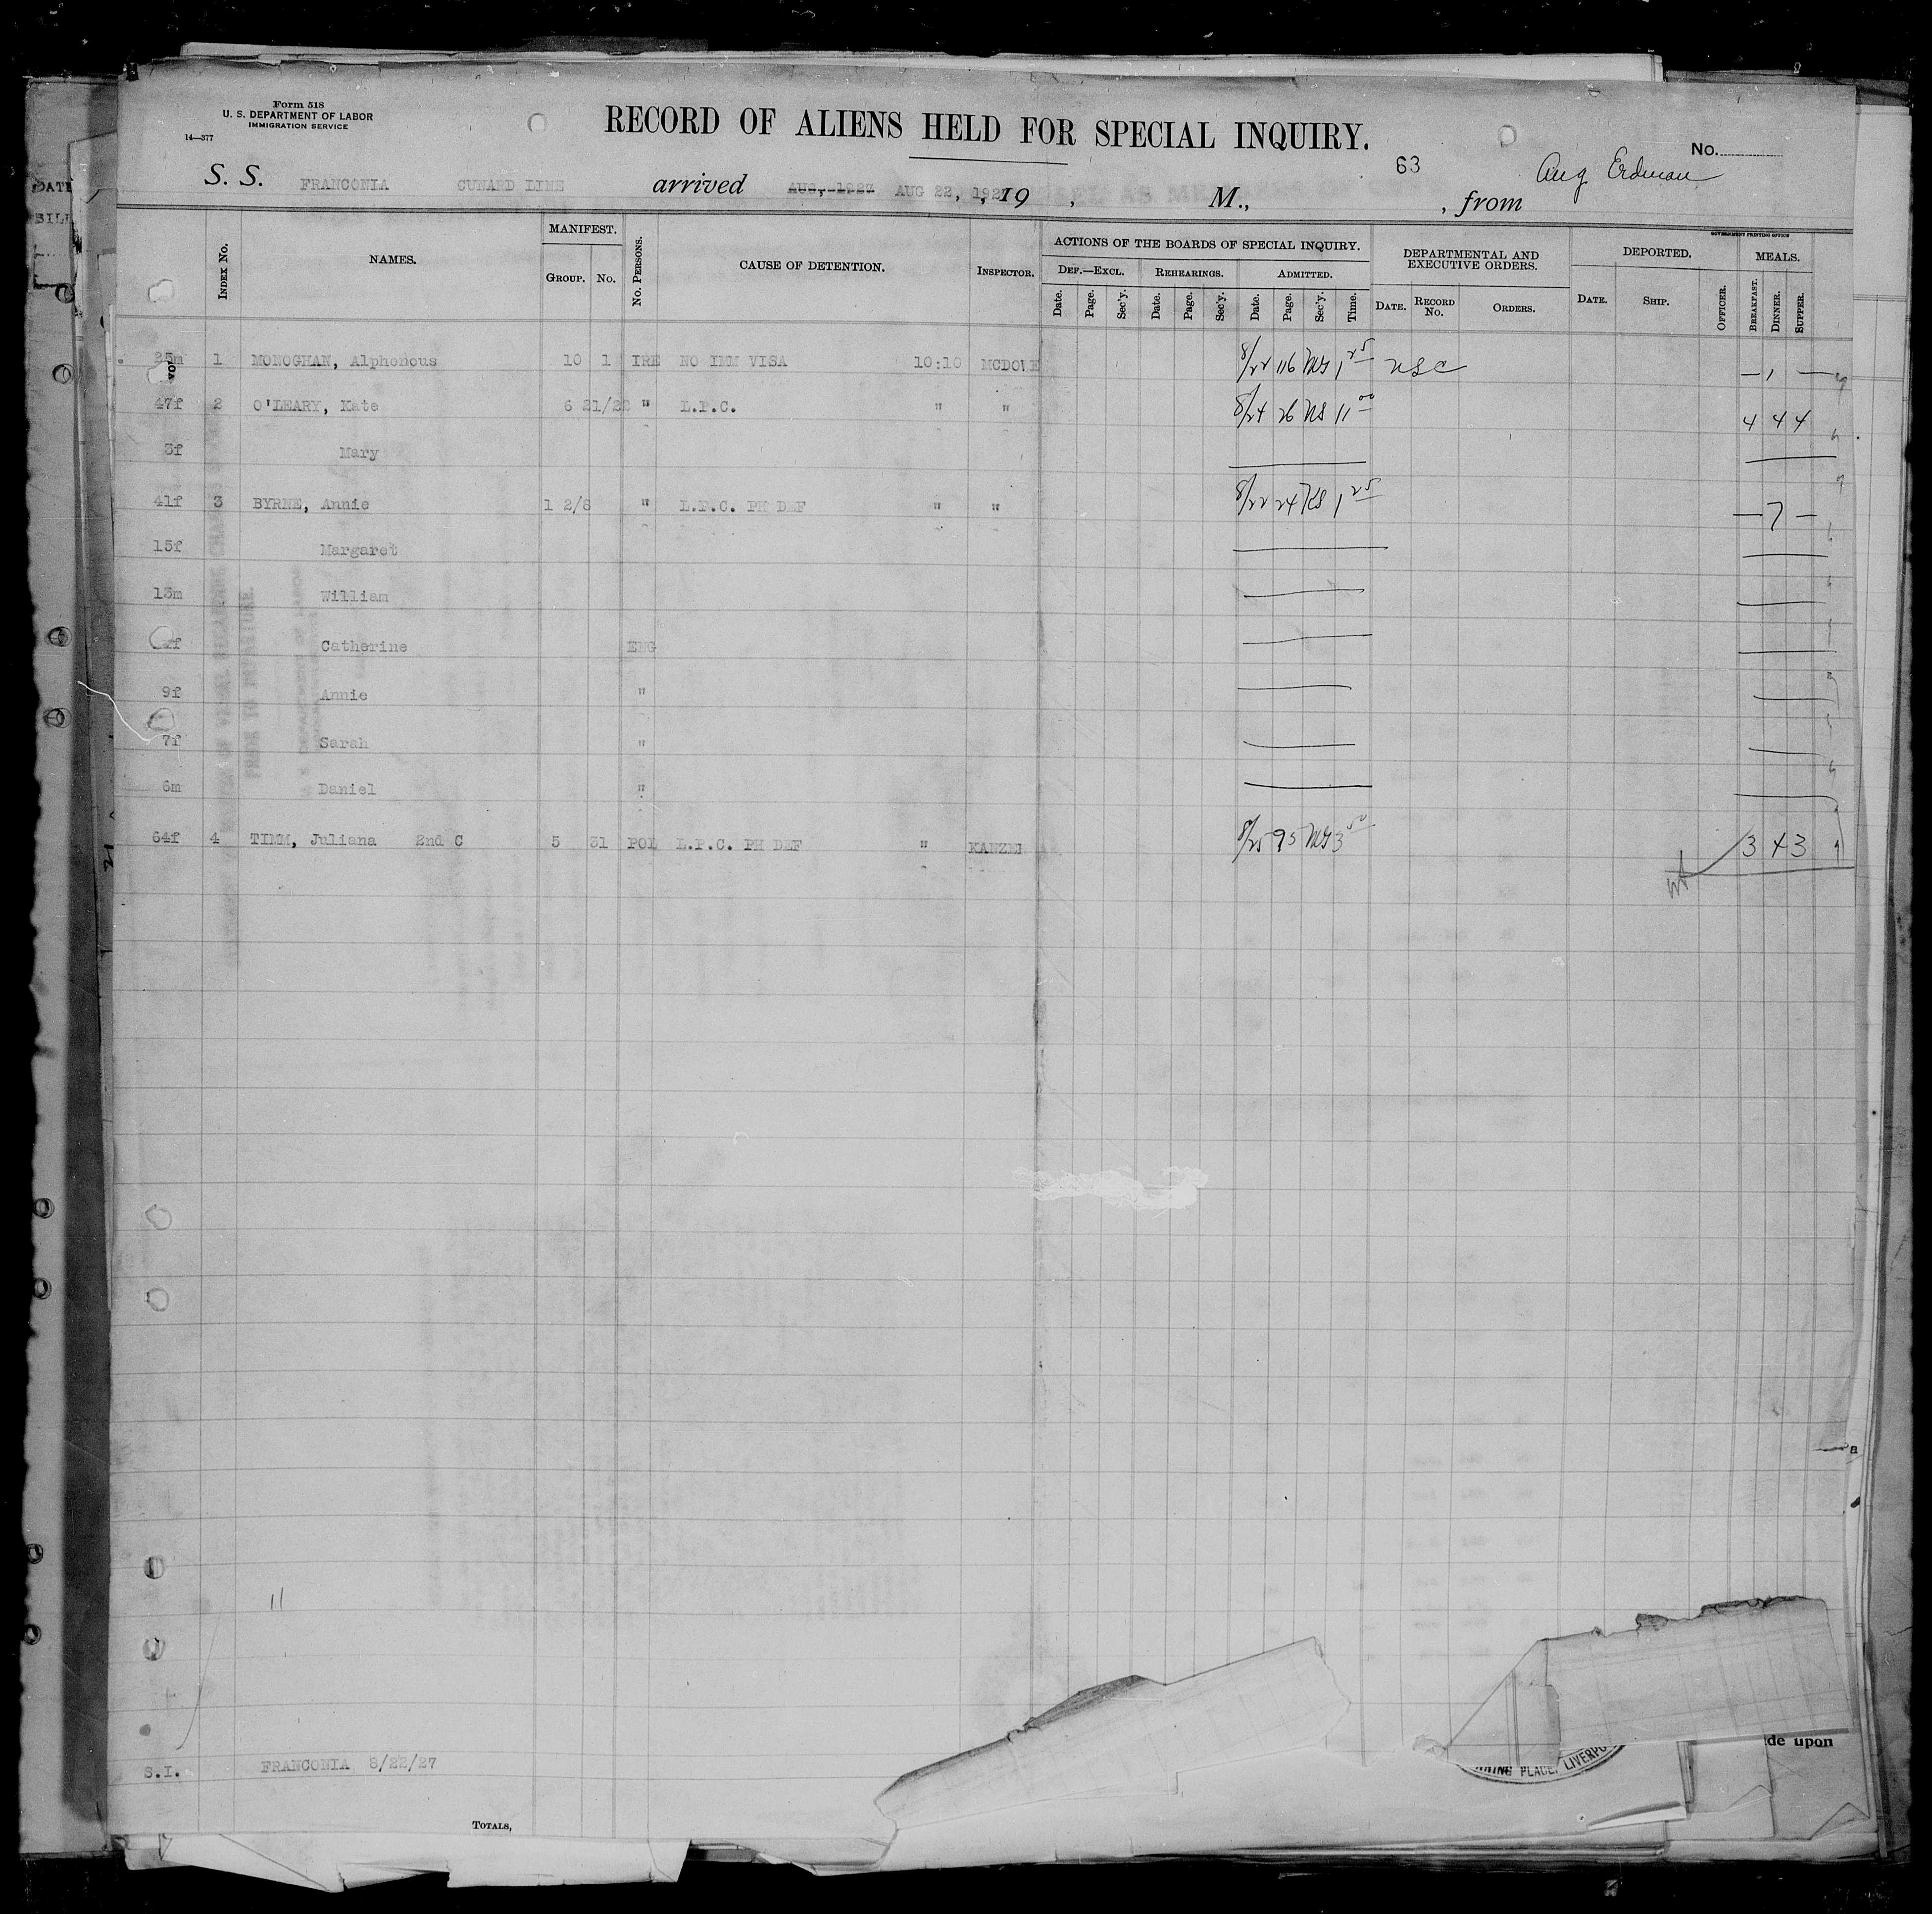 Form 518
U. S. DEPARTMENT OF LABOR
IMMIGRATION SERVICE
14—377
RECORD OF ALIENS HELD FOR SPECIAL INQUIRY.
No.
63
Aug Erdman
S. S. FRANCONIA CUNARD LINE arrived AUG, 1927 AUG 22, 192 , 19 , M., , from
GOVERNMENT PRINTING OFFICE
INDEX No. NAMES. MANIFEST. GROUP. No. No. PERSONS. CAUSE OF DETENTION. INSPECTOR.
ACTIONS OF THE BOARDS OF SPECIAL INQUIRY.
DEF.—EXCL. REHEARINGS. ADMITTED.
Date. Page. Sec'y. Date. Page. Sec'y. Date. Page. Sec'y. Time.
DEPARTMENTAL AND EXECUTIVE ORDERS.
DATE. RECORD No. ORDERS.
DEPORTED.
DATE. SHIP. OFFICER.
MEALS.
BREAKFAST. DINNER. SUPPER.
25m 1 MONOGHAN, Alphonous 10 1 IRE NO IMM VISA 10:10 MCDOWE 8/22 116 MG 1 25 USC — 1 —
47f 2 O'LEARY, Kate 6 21/22 " L.P.C. " " 8/24 26 NS 11 00 4 4 4
8f Mary
41f 3 BYRNE, Annie 1 2/8 " L.P.C. PH DEF " " 8/22 24 KS 1 25 — 7 —
15f Margaret
13m William
f Catherine ENG
9f Annie "
7f Sarah "
6m Daniel "
64f 4 TIMM, Juliana 2nd C 5 31 POL L.P.C. PH DEF " KANZE 8/25 95 MG 3 50 3 4 3
11
S.I. FRANCONIA 8/22/27
TOTALS,
de upon
PLACE, LIVERPO
DATE
BILL